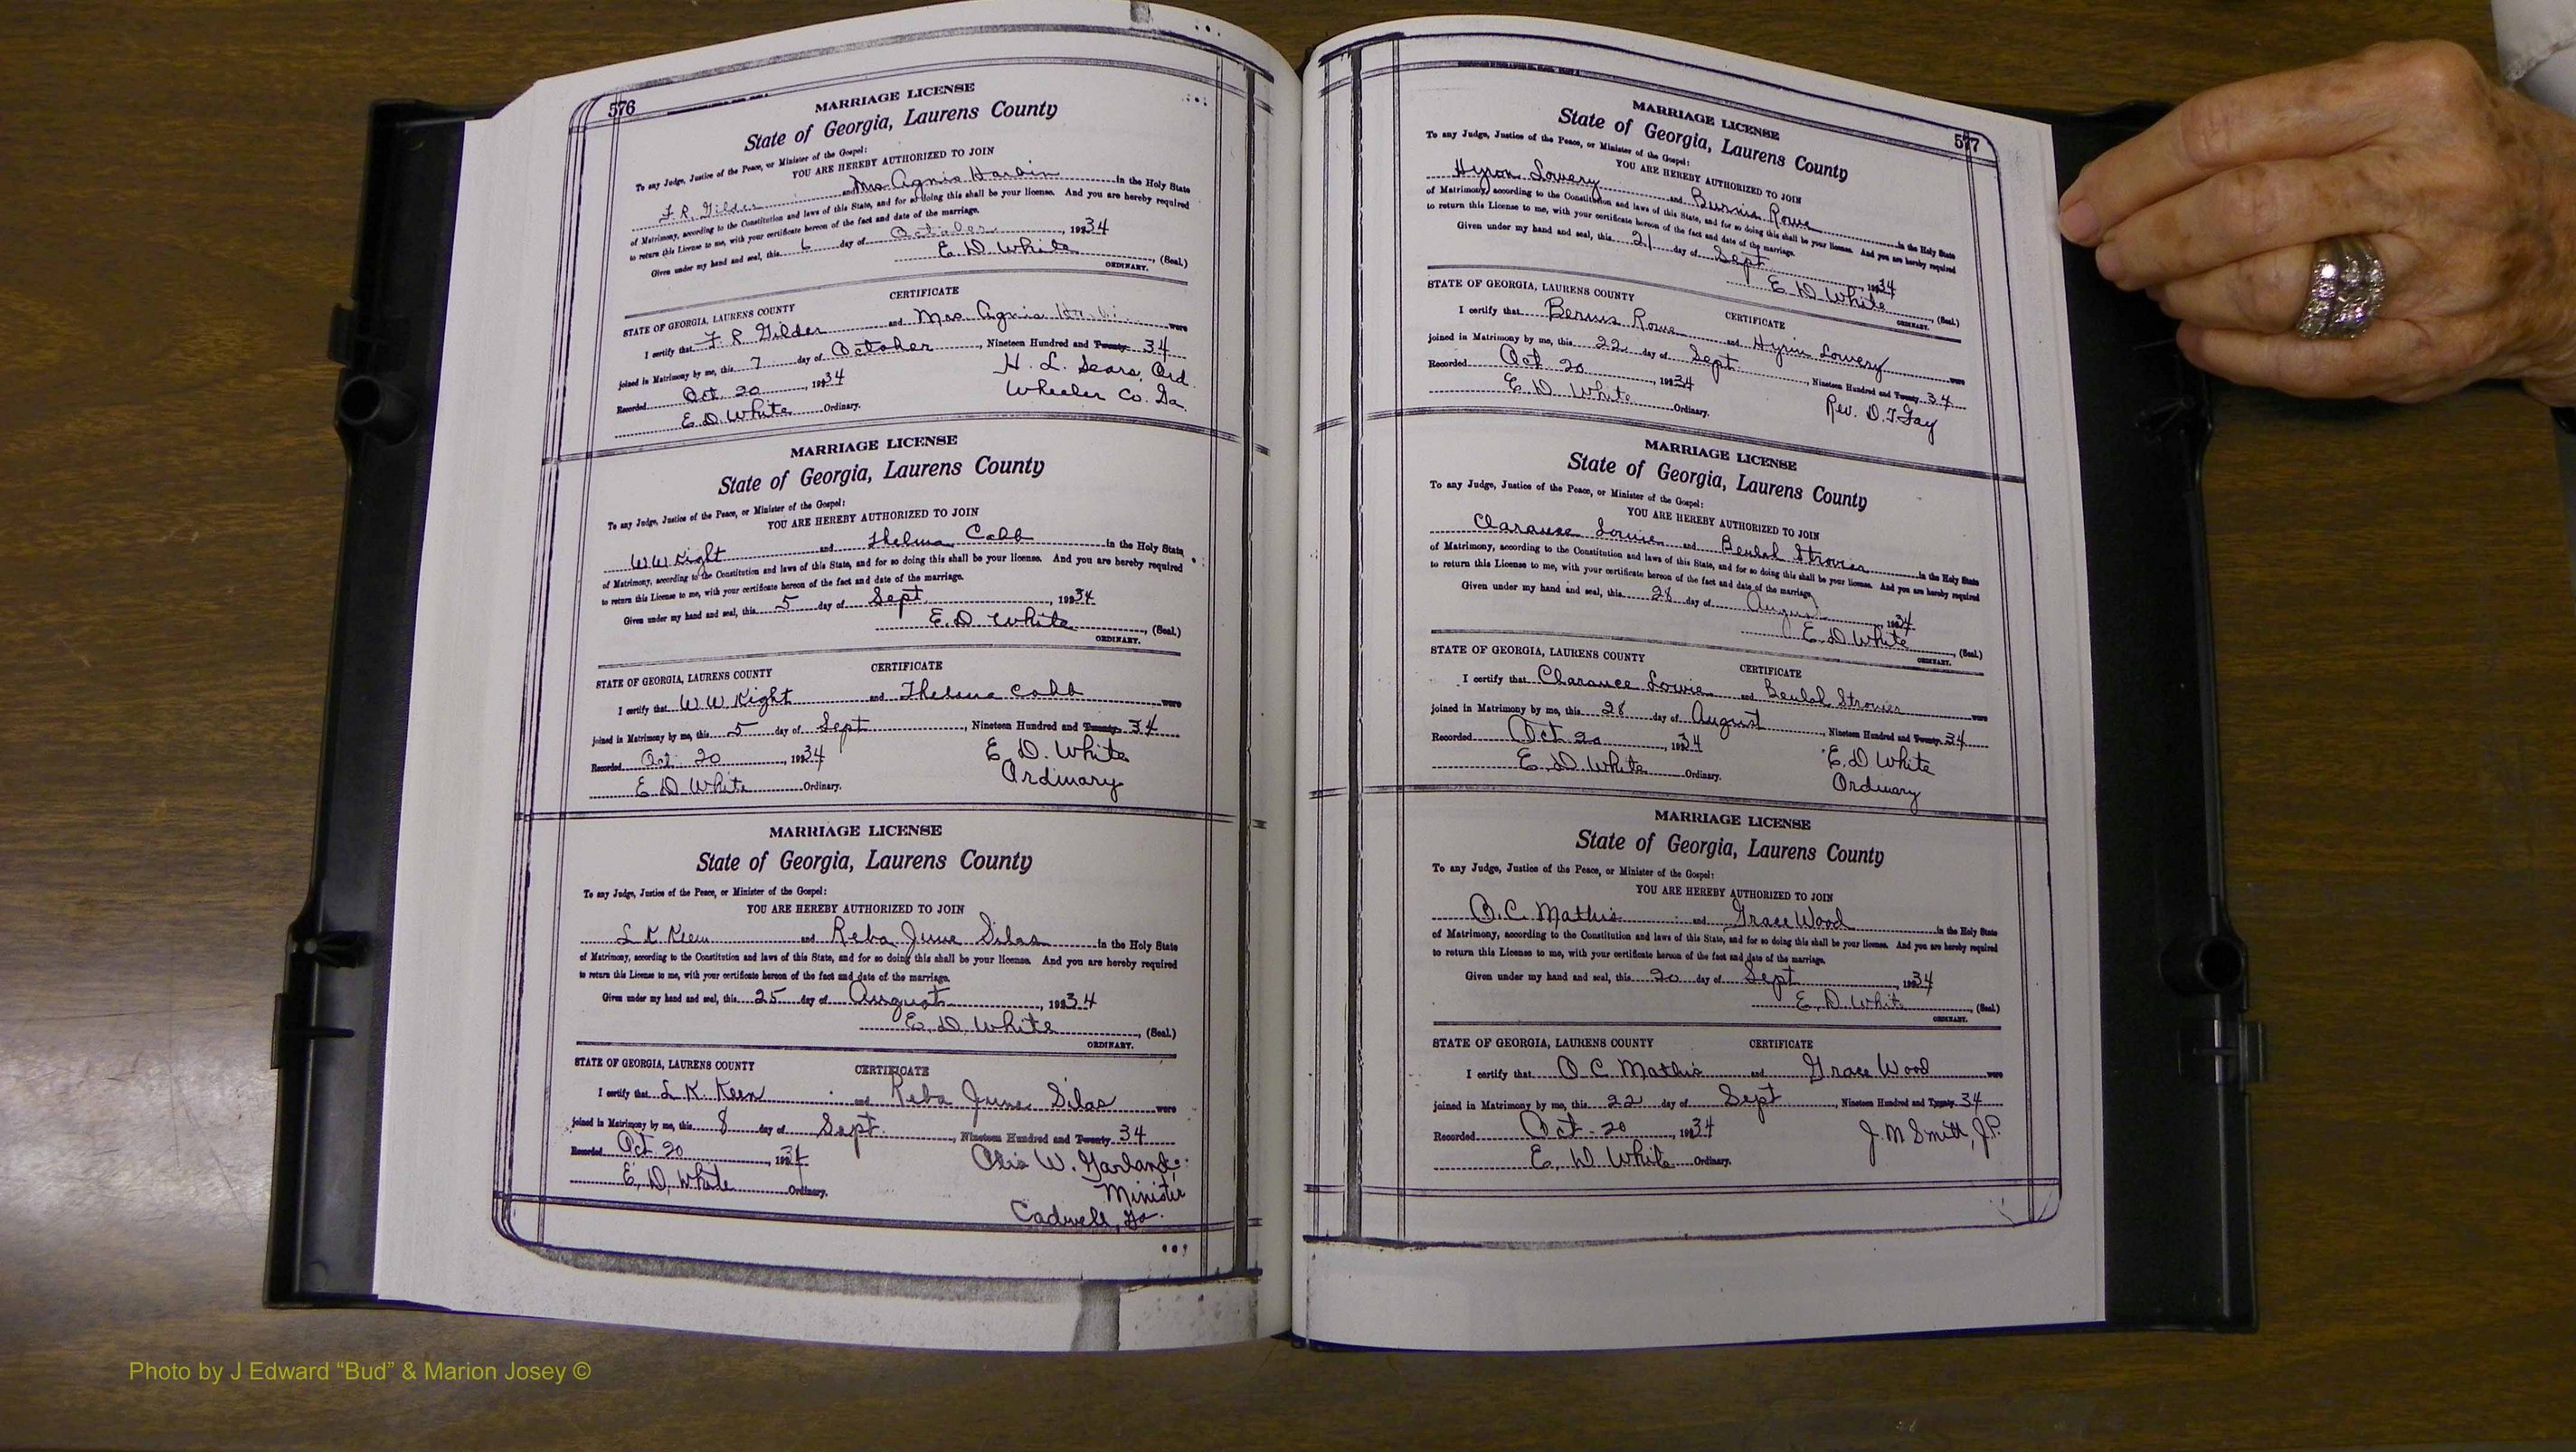 576
MARRIAGE LICENSE
State of Georgia, Laurens County
To any Judge, Justice of the Peace, or Minister of the Gospel:
YOU ARE HEREBY AUTHORIZED TO JOIN
F. R. Gilder and Mrs. Agnis Harbin in the Holy State
of Matrimony, according to the Constitution and laws of this State, and for so doing this shall be your license. And you are hereby required
to return this License to me, with your certificate hereon of the fact and date of the marriage.
Given under my hand and seal, this 6 day of October, 1934
E. D. White, (Seal.)
ORDINARY.
CERTIFICATE
STATE OF GEORGIA, LAURENS COUNTY
I certify that F. R Gilder and Mrs. Agnis were
joined in Matrimony by me, this 7 day of October, Nineteen Hundred and Twenty 34
Recorded Oct. 20, 1934 H. L. Sears, Ord.
E. D. White Ordinary. Wheeler Co. Ga.
MARRIAGE LICENSE
State of Georgia, Laurens County
To any Judge, Justice of the Peace, or Minister of the Gospel:
YOU ARE HEREBY AUTHORIZED TO JOIN
W W Kight and Thelma Cobb in the Holy State
of Matrimony, according to the Constitution and laws of this State, and for so doing this shall be your license. And you are hereby required
to return this License to me, with your certificate hereon of the fact and date of the marriage.
Given under my hand and seal, this 5 day of Sept., 1934
E. D. White, (Seal.)
ORDINARY.
CERTIFICATE
STATE OF GEORGIA, LAURENS COUNTY
I certify that W W Kight and Thelma Cobb were
joined in Matrimony by me, this 5 day of Sept, Nineteen Hundred and Twenty 34
Recorded Oct. 20, 1934 E. D. White
E D White Ordinary. Ordinary
MARRIAGE LICENSE
State of Georgia, Laurens County
To any Judge, Justice of the Peace, or Minister of the Gospel:
YOU ARE HEREBY AUTHORIZED TO JOIN
L K Keen and Reba June Silas in the Holy State
of Matrimony, according to the Constitution and laws of this State, and for so doing this shall be your license. And you are hereby required
to return this License to me, with your certificate hereon of the fact and date of the marriage.
Given under my hand and seal, this 25 day of August, 1934
E. D. White, (Seal.)
ORDINARY.
STATE OF GEORGIA, LAURENS COUNTY CERTIFICATE
I certify that L K. Keen and Reba June Silas were
joined in Matrimony by me, this 8 day of Sept., Nineteen Hundred and Twenty 34
Recorded Oct 20, 1934 W. Garland,
E. D. White Ordinary. Minister
Cadwell, Ga.
577
MARRIAGE LICENSE
State of Georgia, Laurens County
To any Judge, Justice of the Peace, or Minister of the Gospel:
YOU ARE HEREBY AUTHORIZED TO JOIN
Hyron Lowery and Burnis Rowe in the Holy State
of Matrimony, according to the Constitution and laws of this State, and for so doing this shall be your license. And you are hereby required
to return this License to me, with your certificate hereon of the fact and date of the marriage.
Given under my hand and seal, this 21 day of Sept., 1934
E D White, (Seal.)
ORDINARY.
STATE OF GEORGIA, LAURENS COUNTY CERTIFICATE
I certify that Bernis Rowe and Hyrin Lowery were
joined in Matrimony by me, this 22 day of Sept., Nineteen Hundred and Twenty 34
Recorded Oct. 20, 1934 Rev. D. T. Gay
E. D. White Ordinary.
MARRIAGE LICENSE
State of Georgia, Laurens County
To any Judge, Justice of the Peace, or Minister of the Gospel:
YOU ARE HEREBY AUTHORIZED TO JOIN
Clarance Lowie and Beulah Strovier in the Holy State
of Matrimony, according to the Constitution and laws of this State, and for so doing this shall be your license. And you are hereby required
to return this License to me, with your certificate hereon of the fact and date of the marriage.
Given under my hand and seal, this 28 day of August, 1934
E. D. White, (Seal.)
ORDINARY.
STATE OF GEORGIA, LAURENS COUNTY CERTIFICATE
I certify that Clarance Lowie and Beulah Strovier were
joined in Matrimony by me, this 28 day of August, Nineteen Hundred and Twenty 34
Recorded Oct 20, 1934 E. D White
E. D. White Ordinary. Ordinary
MARRIAGE LICENSE
State of Georgia, Laurens County
To any Judge, Justice of the Peace, or Minister of the Gospel:
YOU ARE HEREBY AUTHORIZED TO JOIN
O. C. Mathis and Grace Wood in the Holy State
of Matrimony, according to the Constitution and laws of this State, and for so doing this shall be your license. And you are hereby required
to return this License to me, with your certificate hereon of the fact and date of the marriage.
Given under my hand and seal, this 20 day of Sept, 1934
E. D. White, (Seal.)
ORDINARY.
STATE OF GEORGIA, LAURENS COUNTY CERTIFICATE
I certify that O C Mathis and Grace Wood were
joined in Matrimony by me, this 22 day of Sept, Nineteen Hundred and Twenty 34
Recorded Oct. 20, 1934 J. M Smith, J.P.
E. D White Ordinary.
Photo by J Edward “Bud” & Marion Josey ©